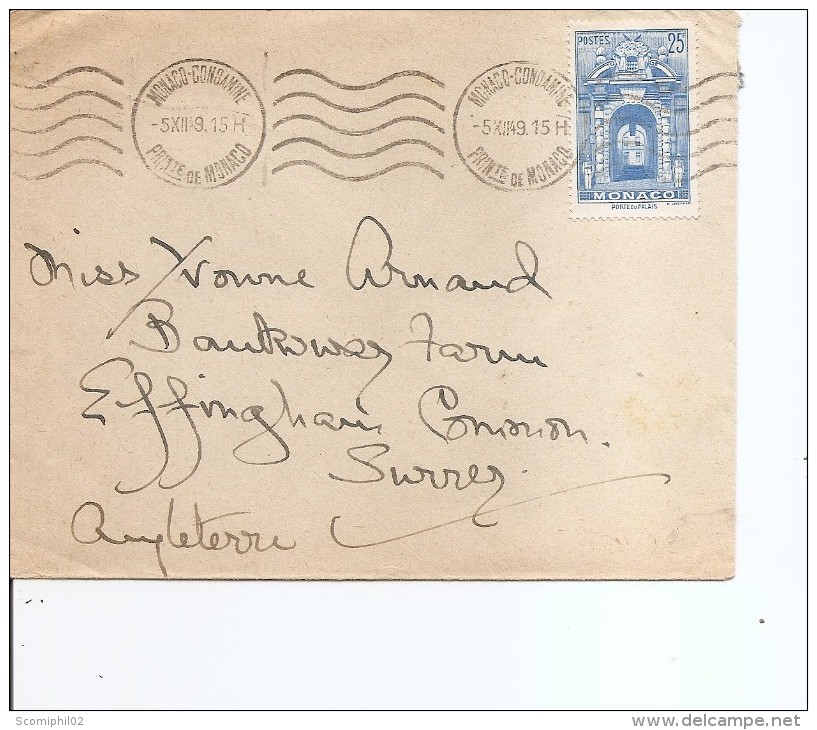 MONACO-CONDAMINE
-5XII49.15H
PRINTE DE MONACO
MONACO-CONDAMINE
-5XII49.15H
PRINTE DE MONACO
POSTES 25F
MONACO
PORTE DU PALAIS
Miss Yvonne Arnaud
Farm
Effingham Common.
Surrey
Angleterre
Scomiphil02
www.delcampe.net